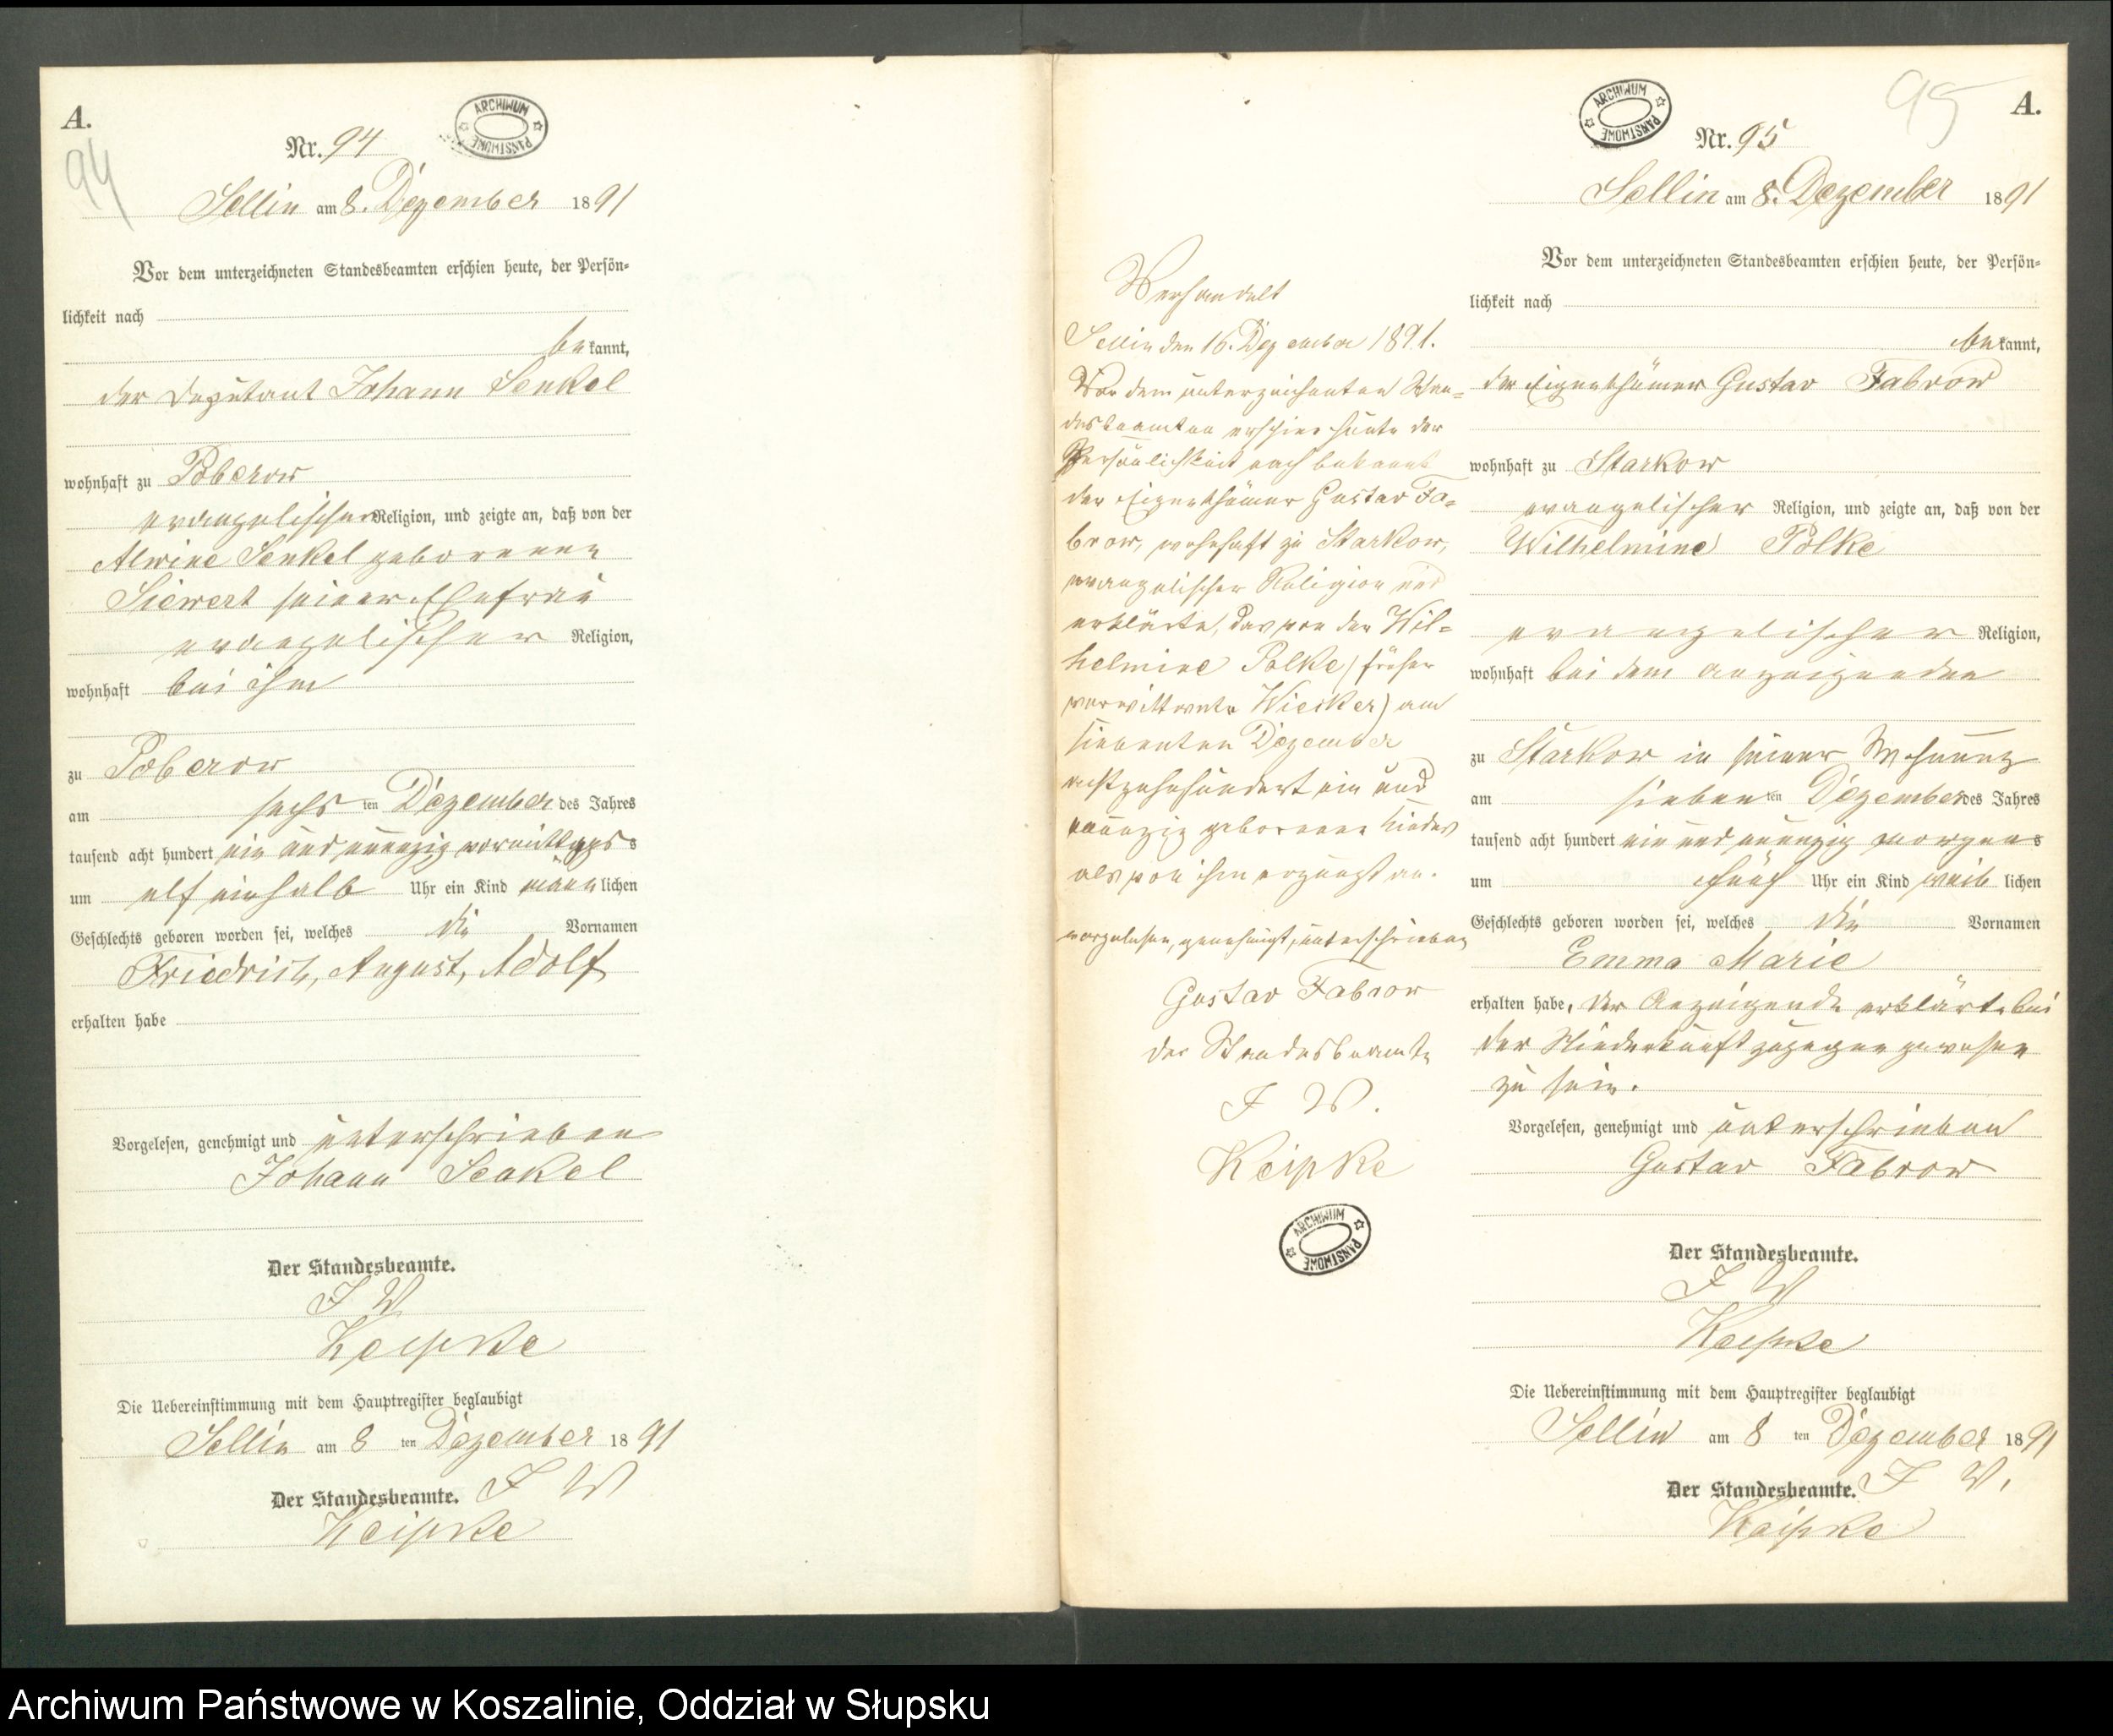 A.
94
ARCHIWUM PAŃSTWOWE
Nr. 94
Sellin am 8. Dezember 1891
Vor dem unterzeichneten Standesbeamten erschien heute, der Persön-
lichkeit nach
bekannt,
der Deputant Johann Senkel
wohnhaft zu Poberow
evangelischer Religion, und zeigte an, daß von der
Alwine Senkel geborenen
Siewert seiner Ehefrau
evangelischer Religion,
wohnhaft bei ihm
zu Poberow
am sechsten Dezember des Jahres
tausend acht hundert ein und neunzig vormittags
um elf einhalb Uhr ein Kind männlichen
Geschlechts geboren worden sei, welches die Vornamen
Friedrich, August, Adolf
erhalten habe
Vorgelesen, genehmigt und unterschrieben
Johann Senkel
Der Standesbeamte.
I V
Keipke
Die Uebereinstimmung mit dem Hauptregister beglaubigt
Sellin am 8 ten Dezember 1891
Der Standesbeamte. I V
Keipke
Verhandelt
Sellin den 16. Dezember 1891.
Vor dem unterzeichneten Stan-
desbeamten erschien heute der
Persönlichkeit nach bekannt
der Eigenthümer Gustav Fa-
brow, wohnhaft zu Starkow,
evangelischer Religion und
erklärte, das von der Wil-
helmine Polke (früher
verwittwete Wiecker) am
siebenten Dezember
achtzehnhundert ein und
neunzig geborenen Kindes
als von ihm erzeugt an.
vorgelesen, genehmigt, unterschrieben
Gustav Fabrow
der Standesbeamte
I V.
Keipke
ARCHIWUM PAŃSTWOWE
A.
95
ARCHIWUM PAŃSTWOWE
Nr. 95
Sellin am 8. Dezember 1891
Vor dem unterzeichneten Standesbeamten erschien heute, der Persön-
lichkeit nach
bekannt,
der Eigenthümer Gustav Fabrow
wohnhaft zu Starkow
evangelischer Religion, und zeigte an, daß von der
Wilhelmine Polke
evangelischer Religion,
wohnhaft bei dem anzeigenden
zu Starkow in seiner Wohnung
am siebenten Dezember des Jahres
tausend acht hundert ein und neunzig morgens
um fünf Uhr ein Kind weiblichen
Geschlechts geboren worden sei, welches die Vornamen
Emma Marie
erhalten habe, der Anzeigende erklärte bei
der Niederkunft zugegen gewesen
zu sein.
Vorgelesen, genehmigt und unterschrieben
Gustav Fabrow
Der Standesbeamte.
I V
Keipke
Die Uebereinstimmung mit dem Hauptregister beglaubigt
Sellin am 8 ten Dezember 1891
Der Standesbeamte. I V.
Keipke
Archiwum Państwowe w Koszalinie, Oddział w Słupsku